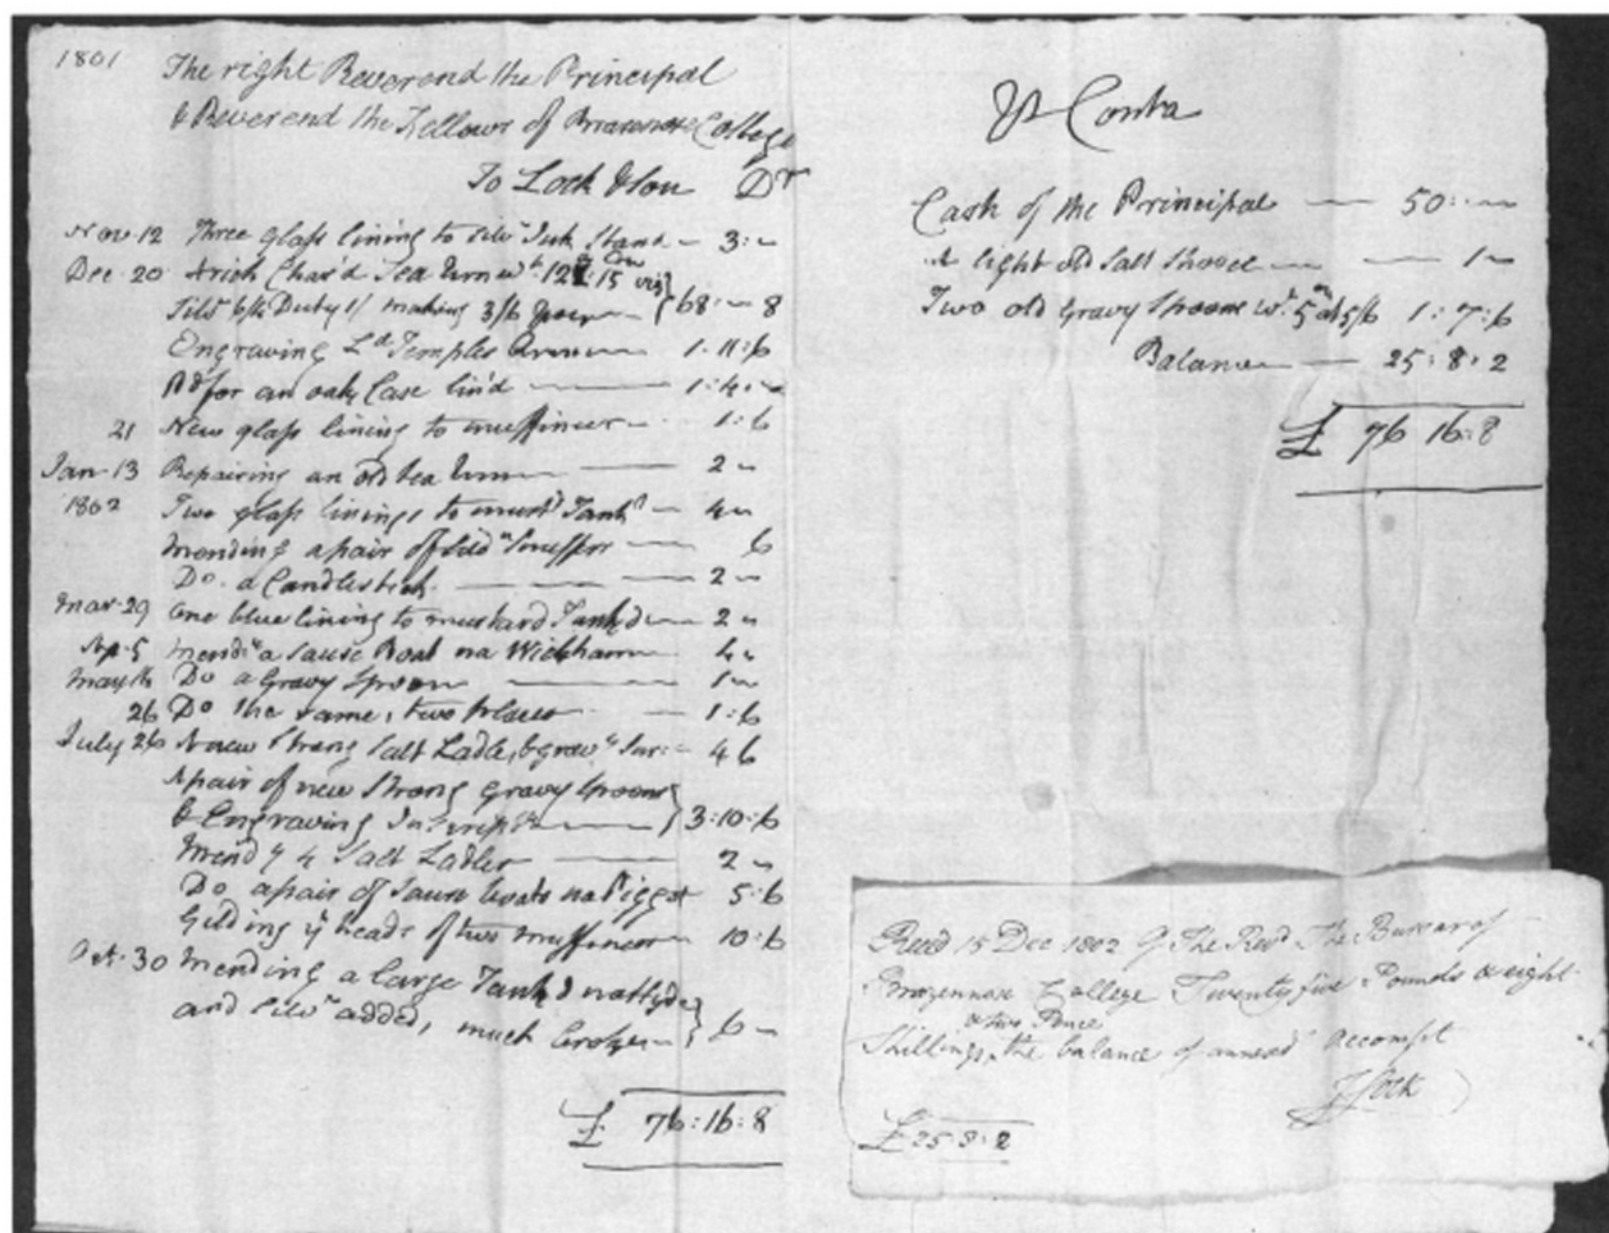 1801
The right Reverend the Principal
& Reverend the Fellows of Brazenose College
To Lock & Son Dr
Nov 12 Three glass lining to silvr Ink Stand - 3: -
Dec 20 A rich Chas'd Tea Urn wt 127 : 15
Silr Duty 1/ making 3/6 } 68: - 8
Engraving Ld Temples Arms 1 - 11 : 6
Pd for an oak Case lin'd 1 : 4 : -
21 New glass lining to muffineer - 1 : 6
Jan 13 Repairing an old tea Urn 2 -
1802 Two glass linings to must Tankd - 4 -
mending a pair of silvr Snuffer 6
Do. a Candlestick 2 -
Mar 29 One blue lining to mustard Tankd 2 -
Ap. 5 mendg a Sause Boat na Wickham 4 -
May Do a Gravy Spoon 1 -
26 Do the same, two places 1 : 6
July 26 A new Strong Salt Ladle, & gravg 4 6
A pair of new Strong Gravy Spoons
& Engraving Inscript } 3 : 10 : 6
Mendg 4 Salt Ladles 2 -
Do a pair of Sause boats na Piggot 5 : 6
Gilding ye heads of two muffineer 10 : 6
Oct. 30 Mending a large Tankd
and silvr added, much broken } 6 -
£ 76 : 16 : 8
Pr Contra
Cash of the Principal 50 : -
A light old Salt Shovel 1 -
Two old Gravy Spoons wt. 5 at 5/6 1 : 7 : 6
Balance 25 : 8 : 2
£ 76 16 : 8
Recd 15 Dec 1802 of The Revd The Bursar of
Brazennose College Twenty five Pounds & eight
& two Pence
Shillings, the balance of annexed Accompt
J Lock
£ 25 : 8 : 2